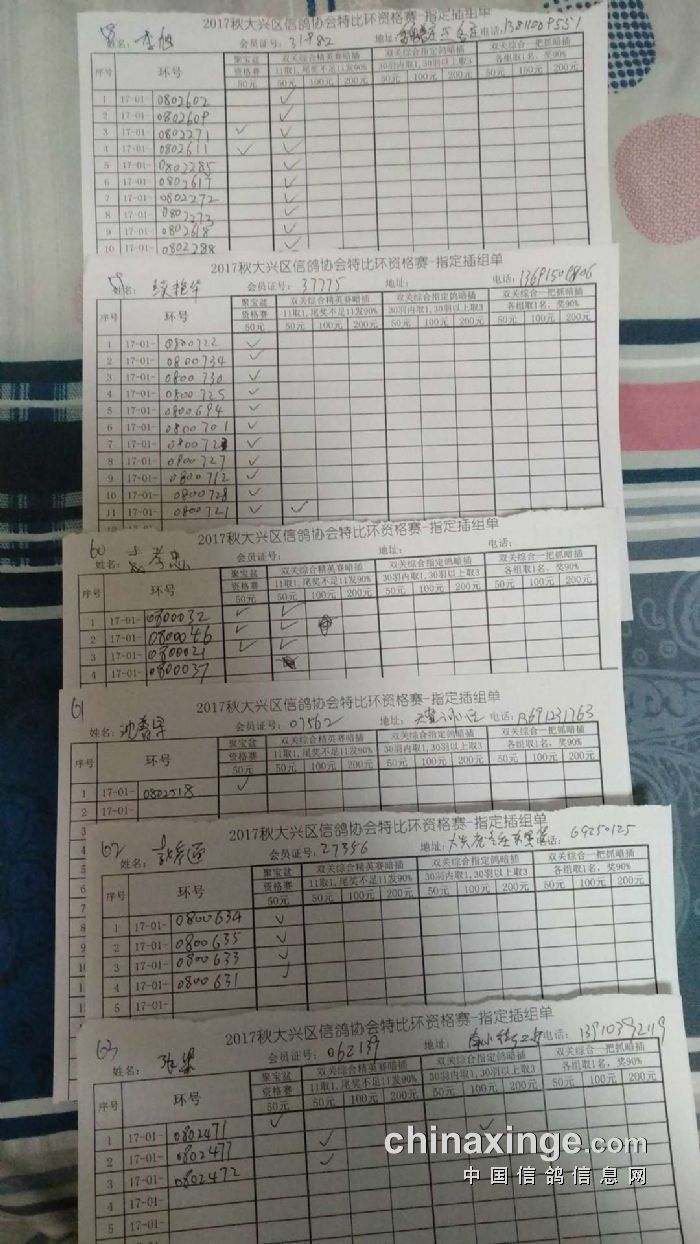 2017秋大兴区信鸽协会特比环资格赛-指定插组单
姓名: 李旭 会员证号: 31982 地址: 电话: 13811009551
序号 环号 聚宝盆 双关综合精英赛暗插 双关综合指定鸽暗插 双关综合一把抓暗插
资格赛 11取1,尾奖不足11发90% 30羽内取1,30羽以上取3 各组取1名,奖90%
50元 50元 100元 200元 50元 100元 200元 50元 100元 200元
1 17-01- 0802602 ✓
2 17-01- 0802609 ✓
3 17-01- 0802271 ✓ ✓
4 17-01- 0802611 ✓ ✓
5 17-01- 0802285 ✓
6 17-01- 0802617 ✓
7 17-01- 0802272 ✓
8 17-01- 0802273 ✓
9 17-01- 0802618 ✓
10 17-01- 0802288 ✓
2017秋大兴区信鸽协会特比环资格赛-指定插组单
姓名: 会员证号: 37775 地址: 电话:
序号 环号 聚宝盆 双关综合精英赛暗插 双关综合指定鸽暗插 双关综合一把抓暗插
资格赛 11取1,尾奖不足11发90% 30羽内取1,30羽以上取3 各组取1名,奖90%
50元 50元 100元 200元 50元 100元 200元 50元 100元 200元
1 17-01- 0800722 ✓
2 17-01- 0800734 ✓
3 17-01- 0800730 ✓
4 17-01- 0800725 ✓
5 17-01- 0800694 ✓
6 17-01- 0800701 ✓
7 17-01- ✓
8 17-01- 0800727 ✓
9 17-01- 0800712 ✓
10 17-01- 0800728 ✓
11 17-01- 0800721 ✓ ✓
2017秋大兴区信鸽协会特比环资格赛-指定插组单
60 姓名: 孝忠 会员证号: 地址: 电话:
序号 环号 聚宝盆 双关综合精英赛暗插 双关综合指定鸽暗插 双关综合一把抓暗插
资格赛 11取1,尾奖不足11发90% 30羽内取1,30羽以上取3 各组取1名,奖90%
50元 50元 100元 200元 50元 100元 200元 50元 100元 200元
1 17-01- 0800032 ✓ ✓
2 17-01- 0800046 ✓ ✓
3 17-01- 0800021 ✓ ✓
4 17-01- 0800037
2017秋大兴区信鸽协会特比环资格赛-指定插组单
61 姓名: 会员证号: 07562 地址: 电话: 13691231763
序号 环号 聚宝盆 双关综合精英赛暗插 双关综合指定鸽暗插 双关综合一把抓暗插
资格赛 11取1,尾奖不足11发90% 30羽内取1,30羽以上取3 各组取1名,奖90%
50元 50元 100元 200元 50元 100元 200元 50元 100元 200元
1 17-01- 0802518 ✓
2 17-01-
2017秋大兴区信鸽协会特比环资格赛-指定插组单
62 姓名: 会员证号: 27356 地址: 电话: 69250125
序号 环号 聚宝盆 双关综合精英赛暗插 双关综合指定鸽暗插 双关综合一把抓暗插
资格赛 11取1,尾奖不足11发90% 30羽内取1,30羽以上取3 各组取1名,奖90%
50元 50元 100元 200元 50元 100元 200元 50元 100元 200元
1 17-01- 0800634 ✓
2 17-01- 0800635 ✓
3 17-01- 0800633 ✓
4 17-01- 0800631 ✓
5 17-01-
2017秋大兴区信鸽协会特比环资格赛-指定插组单
63 姓名: 会员证号: 062139 地址: 电话: 13910392119
序号 环号 聚宝盆 双关综合精英赛暗插 双关综合指定鸽暗插 双关综合一把抓暗插
资格赛 11取1,尾奖不足11发90% 30羽内取1,30羽以上取3 各组取1名,奖90%
50元 50元 100元 200元 50元 100元 200元 50元 100元 200元
1 17-01- 0802471 ✓ ✓
2 17-01- 0802477 ✓
3 17-01- 0802472 ✓
4 17-01-
5 17-01-
chinaxinge.com
中国信鸽信息网